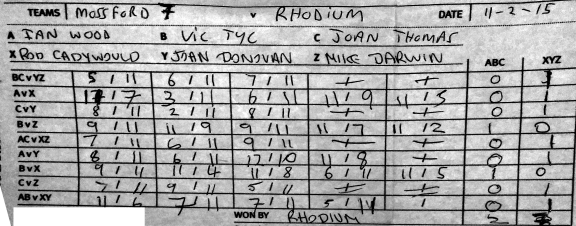 TEAMS MOSSFORD 7 V RHODIUM DATE 11-2-15
A IAN WOOD B VIC TYC C JOAN THOMAS
X ROD CADYWOULD Y JOAN DONOVAN Z MIKE DARWIN ABC XYZ
BCvYZ 5 / 11 6 / 11 7 / 11 0 1
AvX 7 3 / 11 6 / 11 11 / 9 11 / 5 0 1
CvY 8 / 11 2 / 11 8 / 11 0 1
BvZ 9 / 11 11 / 9 9 / 11 11 / 7 11 / 2 1 0
ACvXZ 7 / 11 6 / 11 9 / 11 0 1
AvY 8 / 11 6 / 11 12 / 10 11 / 8 0 1
BvX 9 / 11 11 / 4 11 / 8 6 / 11 11 / 5 1 0
CvZ 7 / 11 9 / 11 5 / 11 0 1
ABvXY 11 / 6 7 / 11 7 / 11 5 / 11 0 1
WON BY RHODIUM